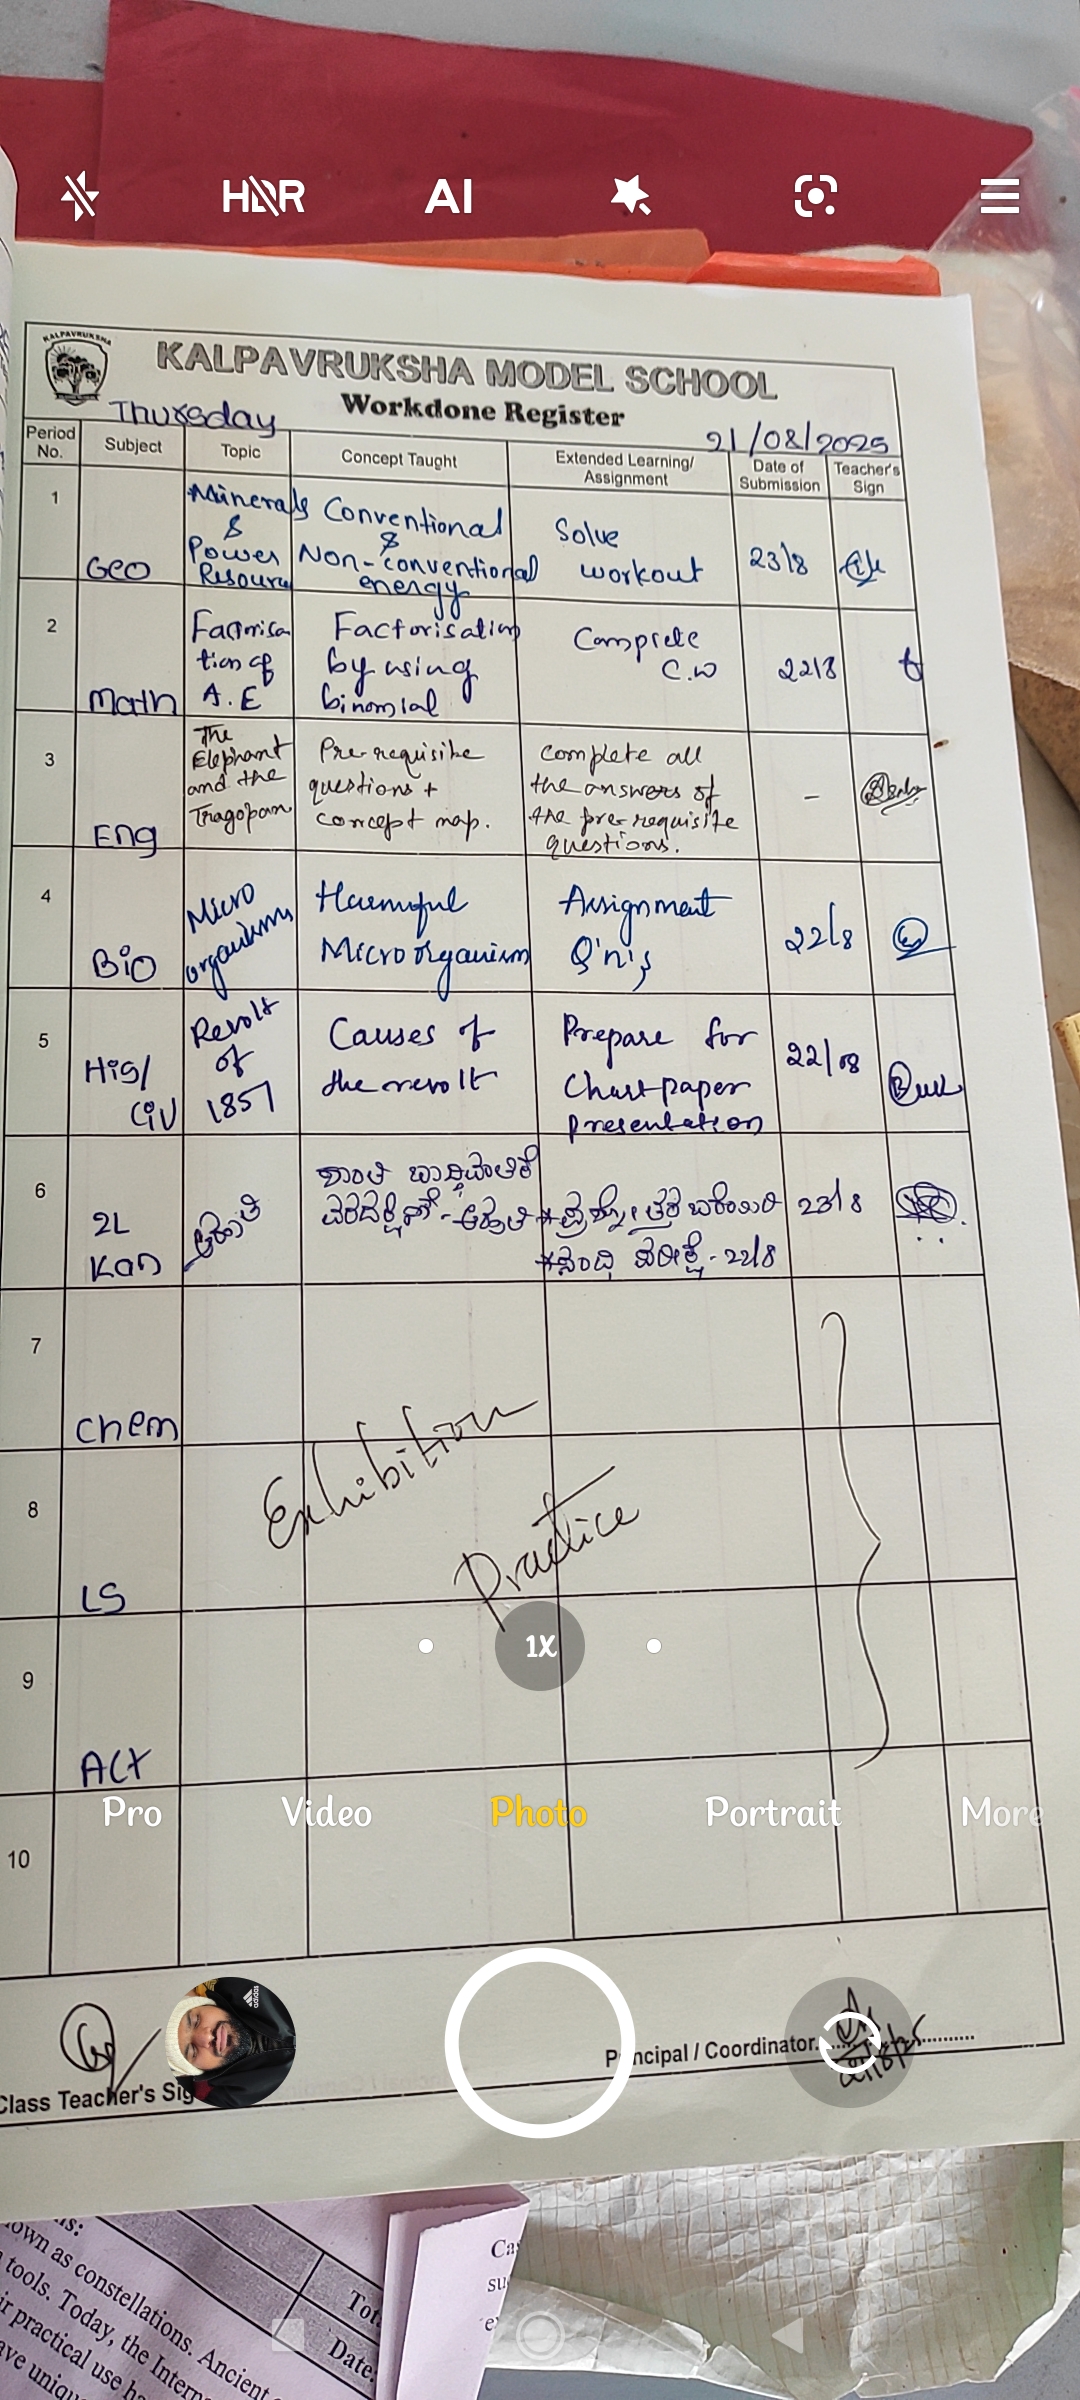 HDR AI
KALPAVRUKSHA
KALPAVRUKSHA MODEL SCHOOL
Thursday Workdone Register 21/08/2025
Period No. Subject Topic Concept Taught Extended Learning/ Assignment Date of Submission Teacher's Sign
1 Geo Minerals & Power Resource Conventional & Non-conventional energy Solve workout 23/8
2 Math Factorisation of A.E Factorisation by using binomial Complete C.W 22/8
3 Eng The Elephant and the Tragopan Pre-requisite questions + concept map. Complete all the answers of the pre-requisite questions. -
4 Bio Micro organisms Harmful Microorganism Assignment Q'n's 22/8
5 His/ Civ Revolt of 1857 Causes of the revolt Prepare for Chart paper presentation 22/08
6 2L Kan 23/8
22/8
7 Chem
Exhibition
8 LS
Practice
9 Act
1X
Pro Video Photo Portrait More
10
adidas
Principal / Coordinator
Class Teacher's Sig
own as constellations. Ancient
tools. Today, the Intern
ir practical use ha
ave uniqu
Tot
Date:
Ca
su